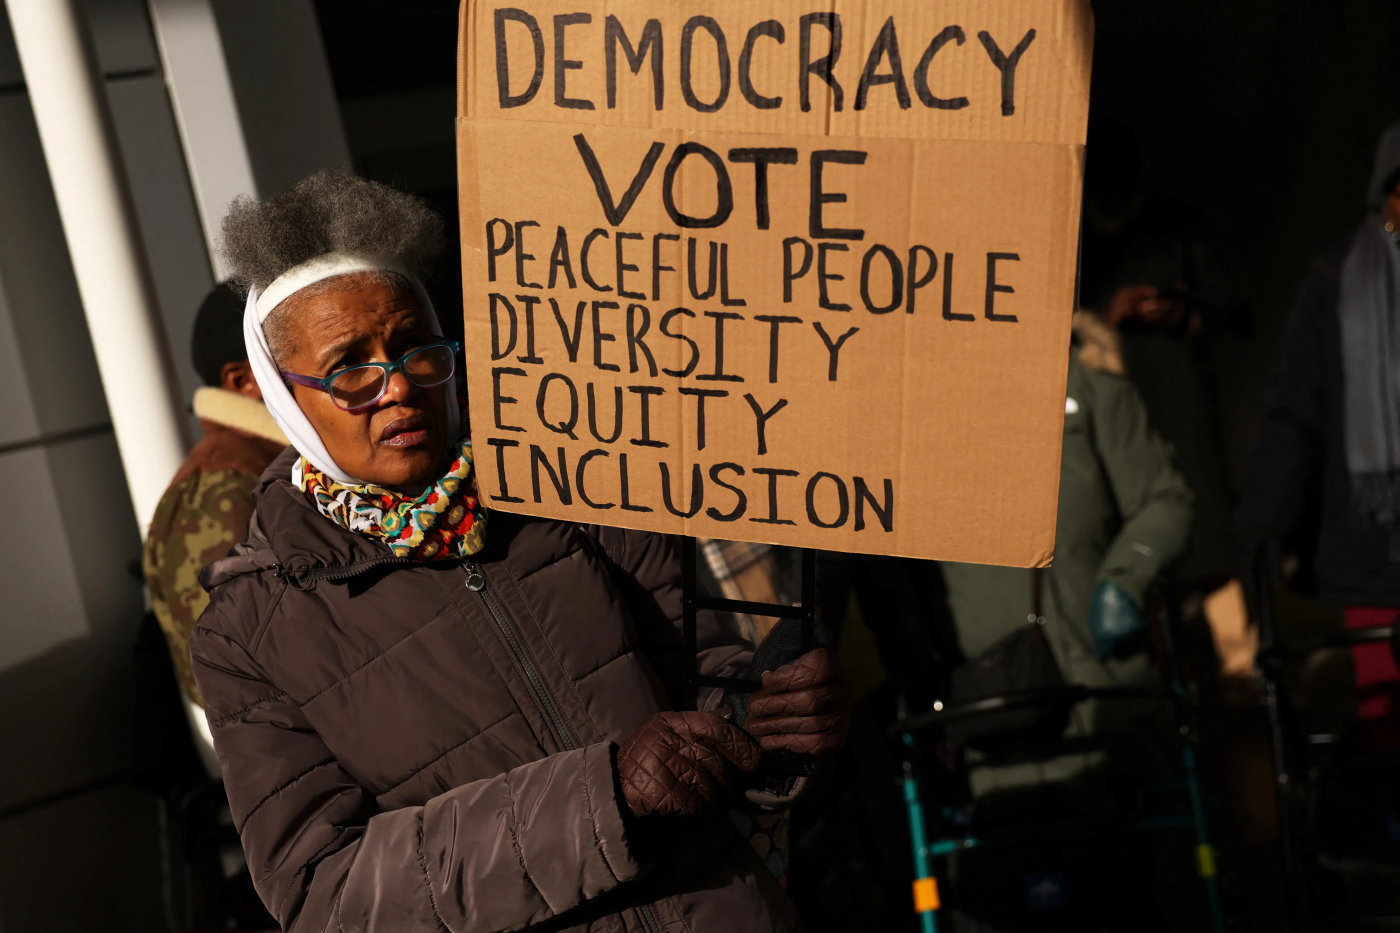 DEMOCRACY
VOTE
PEACEFUL PEOPLE
DIVERSITY
EQUITY
INCLUSION